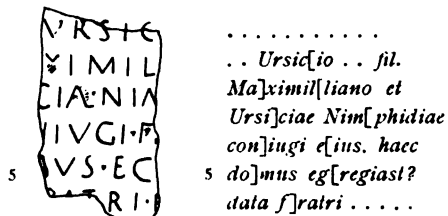 VRSIC
XIMIL
CIAE·NIM
IVGI·E
5 VS·EC
RI·
. . . . . . . . . . . .
. . Ursic[io . . fil.
Ma]ximil[liano et
Ursi]ciae Nim[phidiae
con]iugi e[ius. haec
5 do]mus eg[regiast?
data f]ratri . . . . .